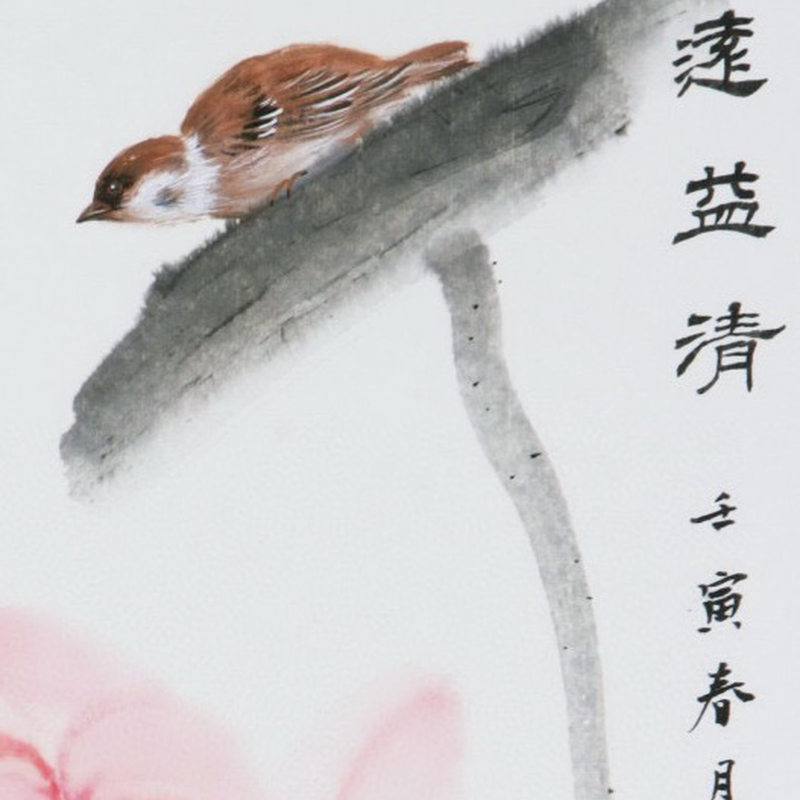 遠益清
壬寅春月